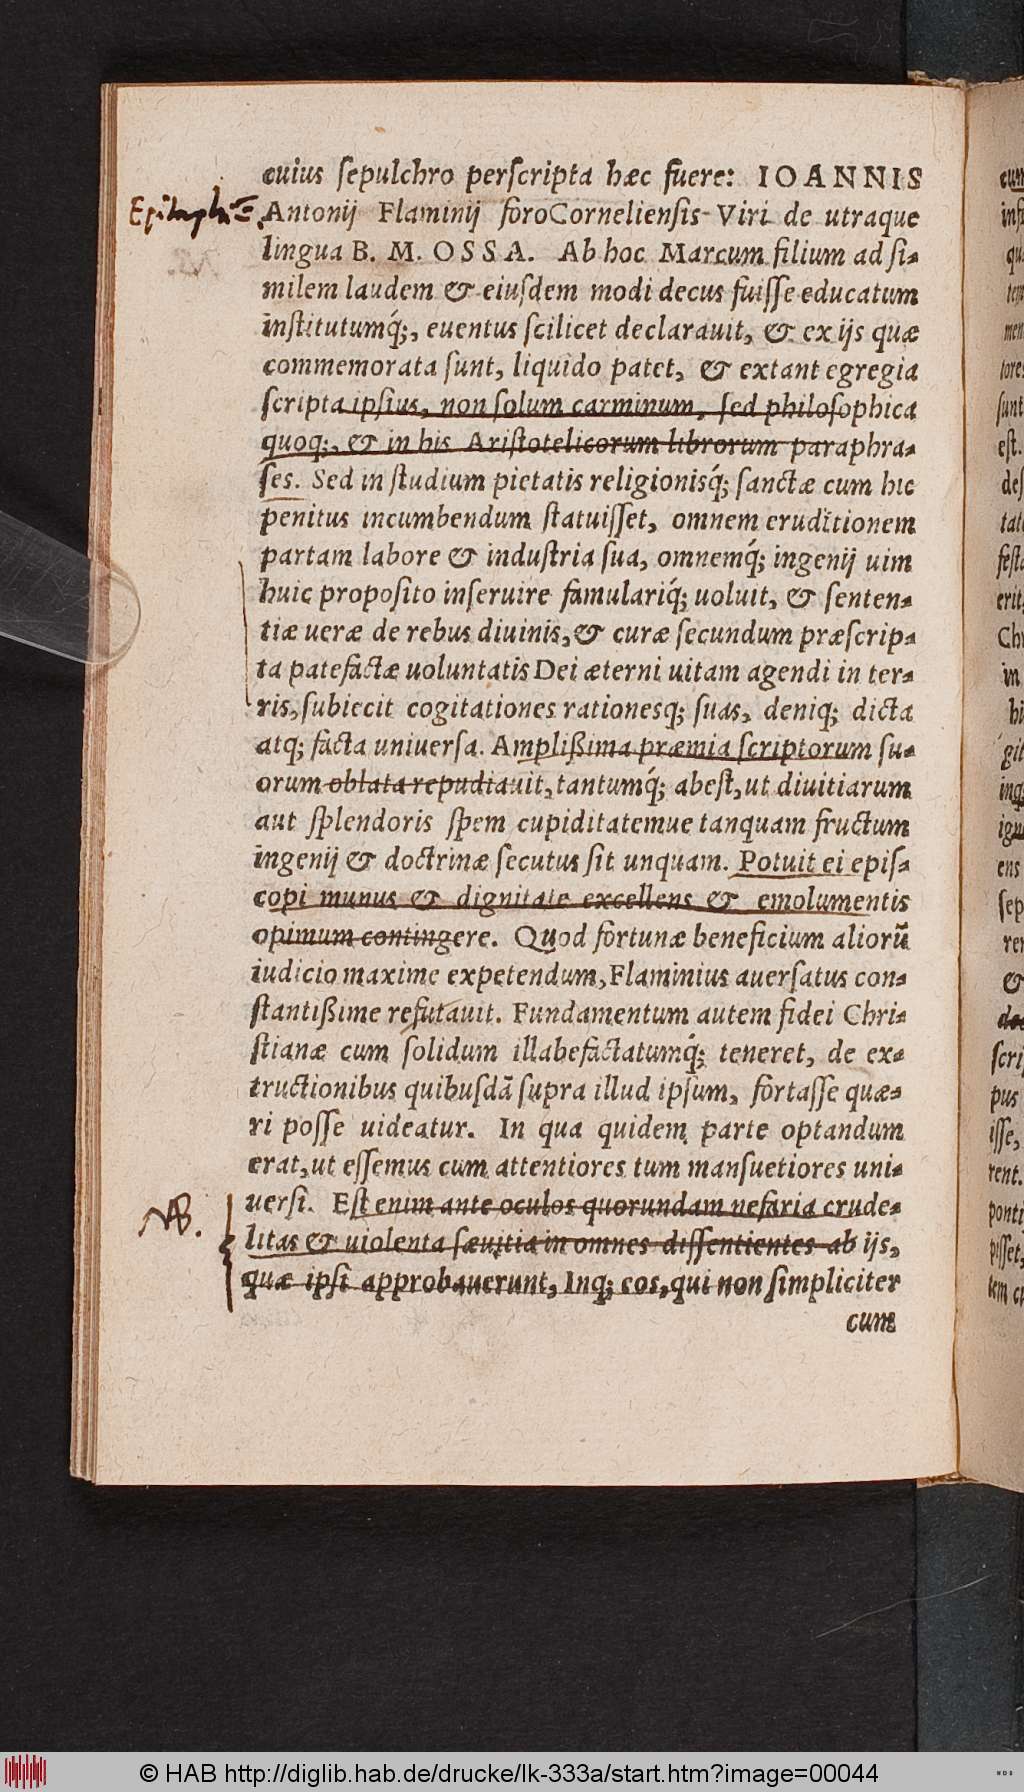 cuius ſepulchro perſcripta hæc fuere: IOANNIS
Antonij Flaminij foroCornelienſis Viri de utraque
lingua B. M. OSSA. Ab hoc Marcum filium ad ſi-
milem laudem & eiuſdem modi decus fuiſſe educatum
inſtitutumq́;, euentus ſcilicet declarauit, & ex ijs quæ
commemorata ſunt, liquido patet, & extant egregia
ſcripta ipſius, non ſolum carminum, ſed philoſophica
quoq;, & in his Ariſtotelicorum librorum paraphra-
ſes. Sed in ſtudium pietatis religionisq́; ſanctæ cum hic
penitus incumbendum ſtatuiſſet, omnem eruditionem
partam labore & induſtria ſua, omnemq́; ingenij uim
huic propoſito inſeruire famulariq́; uoluit, & ſenten-
tiæ ueræ de rebus diuinis, & curæ ſecundum præſcrip-
ta patefactæ uoluntatis Dei æterni uitam agendi in ter-
ris, ſubiecit cogitationes rationesq; ſuas, deniq; dicta
atq; facta uniuerſa. Ampliſsima præmia ſcriptorum ſu-
orum oblata repudiauit, tantumq́; abeſt, ut diuitiarum
aut ſplendoris ſpem cupiditatemue tanquam fructum
ingenij & doctrinæ ſecutus ſit unquam. Potuit ei epiſ-
copi munus & dignitate excellens & emolumentis
opimum contingere. Quod fortunæ beneficium aliorū
iudicio maxime expetendum, Flaminius auerſatus con-
ſtantiſsime refutauit. Fundamentum autem fidei Chri-
ſtianæ cum ſolidum illabefactatumq́; teneret, de ex-
tructionibus quibuſdā ſupra illud ipſum, fortaſſe quæ-
ri poſſe uideatur. In qua quidem parte optandum
erat, ut eſſemus cum attentiores tum manſuetiores uni-
uerſi. Eſt enim ante oculos quorundam nefaria crude-
litas & uiolenta ſæuitia in omnes diſſentientes ab ijs,
quæ ipſi approbauerunt, Inq; eos, qui non ſimpliciter
cum
NB.
© HAB http://diglib.hab.de/drucke/lk-333a/start.htm?image=00044